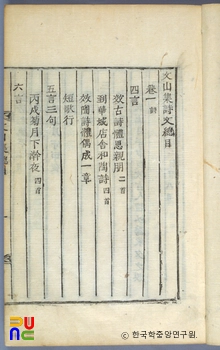 文山集詩文總目
卷一 詩
四言
效古詩體思親朋 二首
到華城店舍和陶詩 四首
效陶詩體偶成一章
短歌行
五言三句
丙戌菊月下澣夜 四首
六言
© 한국학중앙연구원